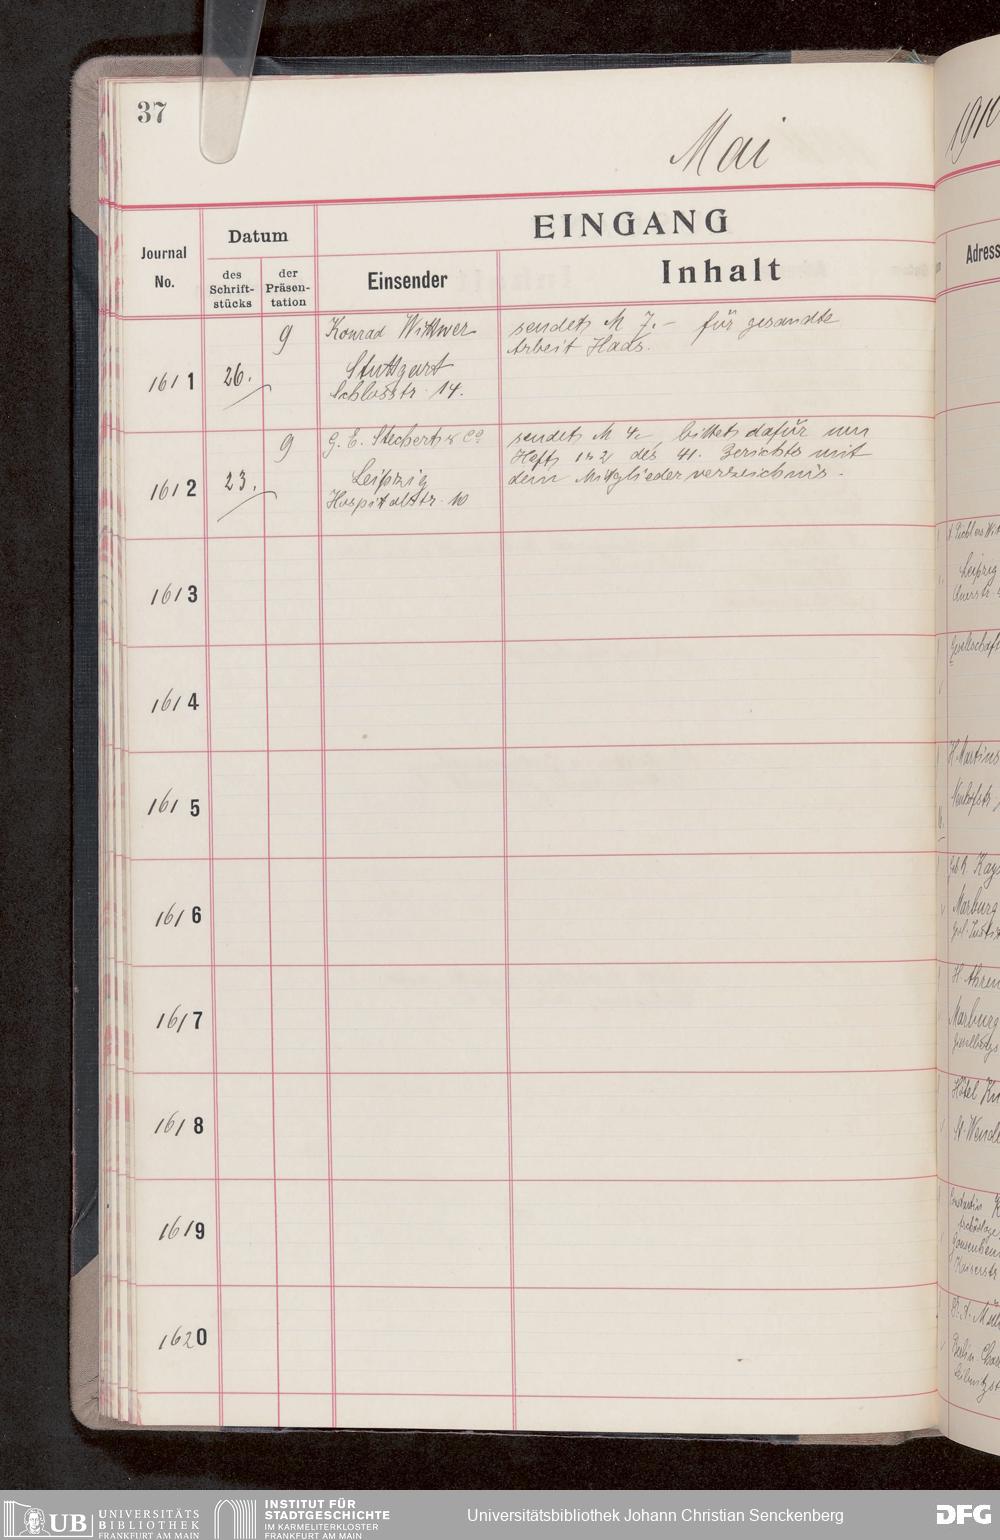 37
Mai
1910
EINGANG
Journal
No.
Datum
des
Schrift-
stücks
der
Präsen-
tation
Einsender
Inhalt
Adress
1611
26.
9
Konrad Wittwer
Stuttgart
Schlosstr. 14.
sendet M 7.– für gesandte
Arbeit Haas.
1612
23.
9
G. E. Stechert & Co
Leipzig
Hospitalstr. 10
sendet M 4.–, bittet dafür um
Heft 1 u 2 des 41. Berichts mit
dem Mitgliederverzeichnis.
1613
Leipzig
1614
Gesellschaft
1615
H. Martins
1616
Marburg
1617
H. Ahren
Marburg
1618
Hôtel
St. Wende
1619
Kaiserstr
1620
Berlin
UB UNIVERSITÄTS
BIBLIOTHEK
FRANKFURT AM MAIN
INSTITUT FÜR
STADTGESCHICHTE
IM KARMELITERKLOSTER
FRANKFURT AM MAIN
Universitätsbibliothek Johann Christian Senckenberg
DFG